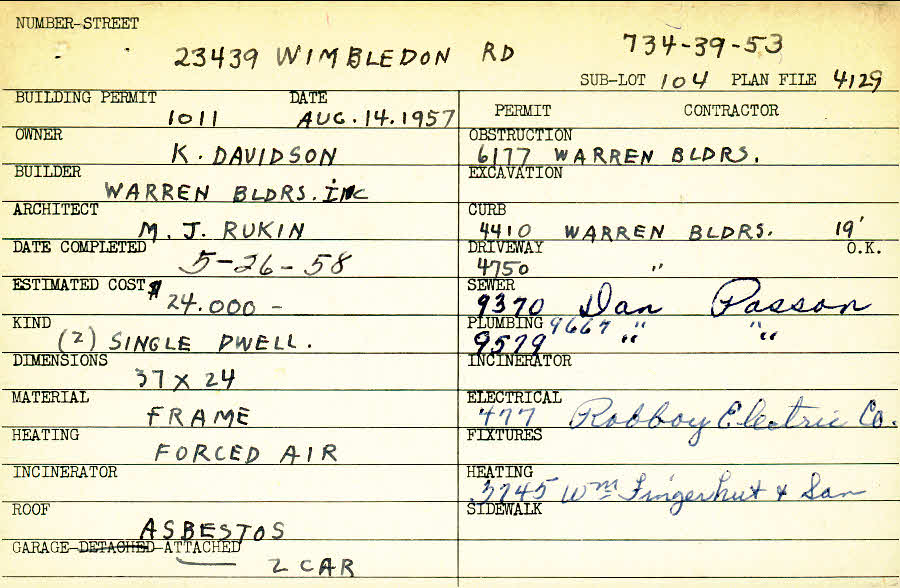 NUMBER-STREET
23439 WIMBLEDON RD 734-39-53
SUB-LOT 104 PLAN FILE 4129
BUILDING PERMIT DATE
1011 AUG.14.1957
OWNER
K. DAVIDSON
BUILDER
WARREN BLDRS. INC
ARCHITECT
M. J. RUKIN
DATE COMPLETED
5-26-58
ESTIMATED COST $
24.000 -
KIND
(2) SINGLE DWELL.
DIMENSIONS
37 X 24
MATERIAL
FRAME
HEATING
FORCED AIR
INCINERATOR
ROOF
ASBESTOS
GARAGE-DETACHED-ATTACHED
2 CAR
PERMIT CONTRACTOR
OBSTRUCTION
6177 WARREN BLDRS.
EXCAVATION
CURB
4410 WARREN BLDRS. 19'
DRIVEWAY O.K.
4750 "
SEWER
9370 Dan Passon
PLUMBING 9667 " "
9579 " "
INCINERATOR
ELECTRICAL
477 Robboy Electric Co.
FIXTURES
HEATING
3745 Wm Fingerhut & Son
SIDEWALK